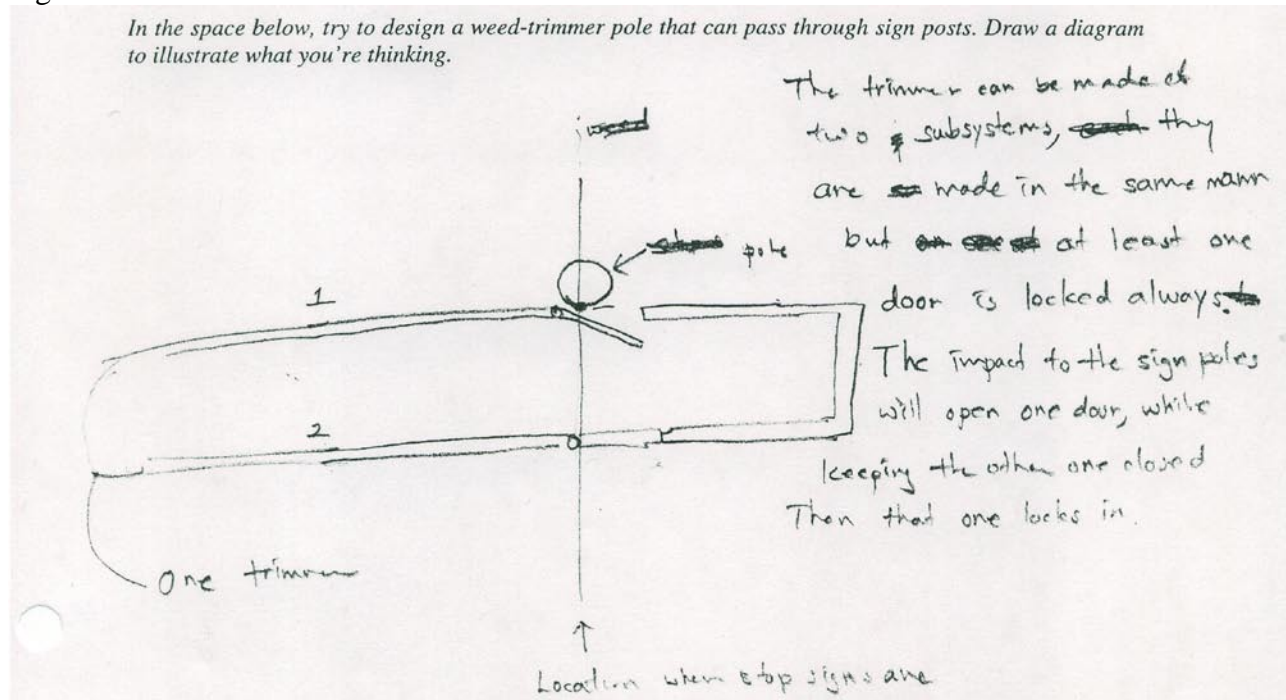 In the space below, try to design a weed-trimmer pole that can pass through sign posts. Draw a diagram
to illustrate what you're thinking.
The trimmer can be made of
two subsystems, they
are made in the same mann
but at least one
door is locked always.
The impact to the sign poles
will open one door, while
keeping the other one closed
Then that one locks in.
pole
1
2
One trimmer
Location when stop signs are